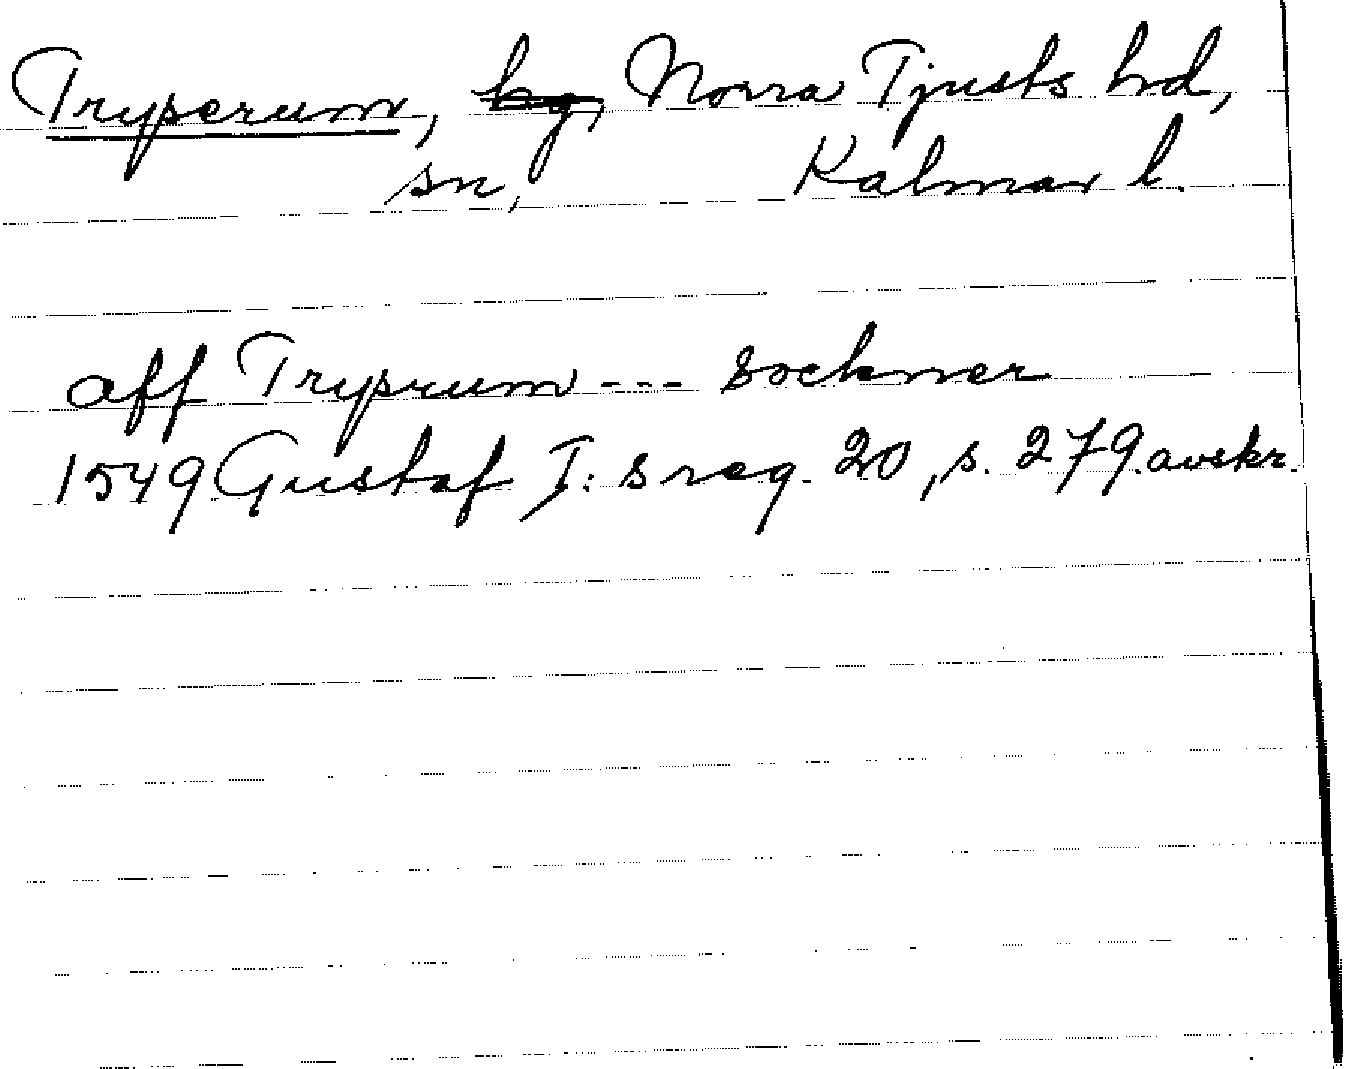 Tryserum, hg, Norra Tjusts hrd,
sn, Kalmar l.
aff Trysrum --- sockner
1549 Gustaf I:s reg. 20, s. 279. avskr.